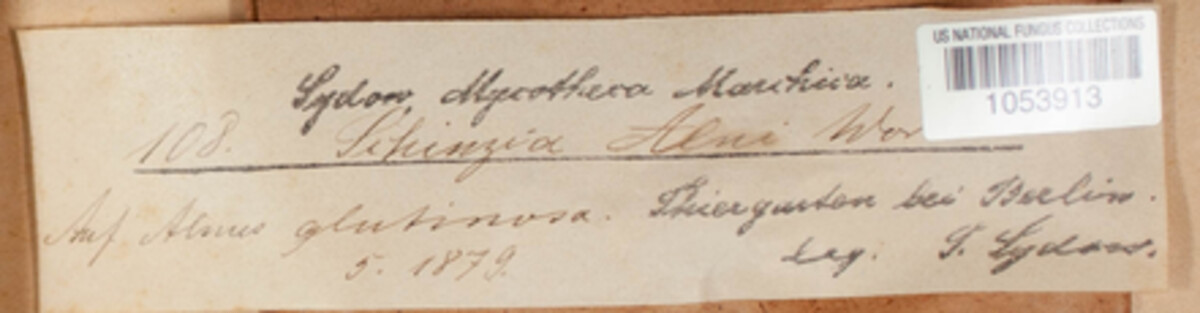 US NATIONAL FUNGUS COLLECTIONS
1053913
Sydow, Mycotheca Marchica.
108. Schinzia Alni Wor
Auf Alnus glutinosa. Thiergarten bei Berlin.
5. 1879. leg. P. Sydow.